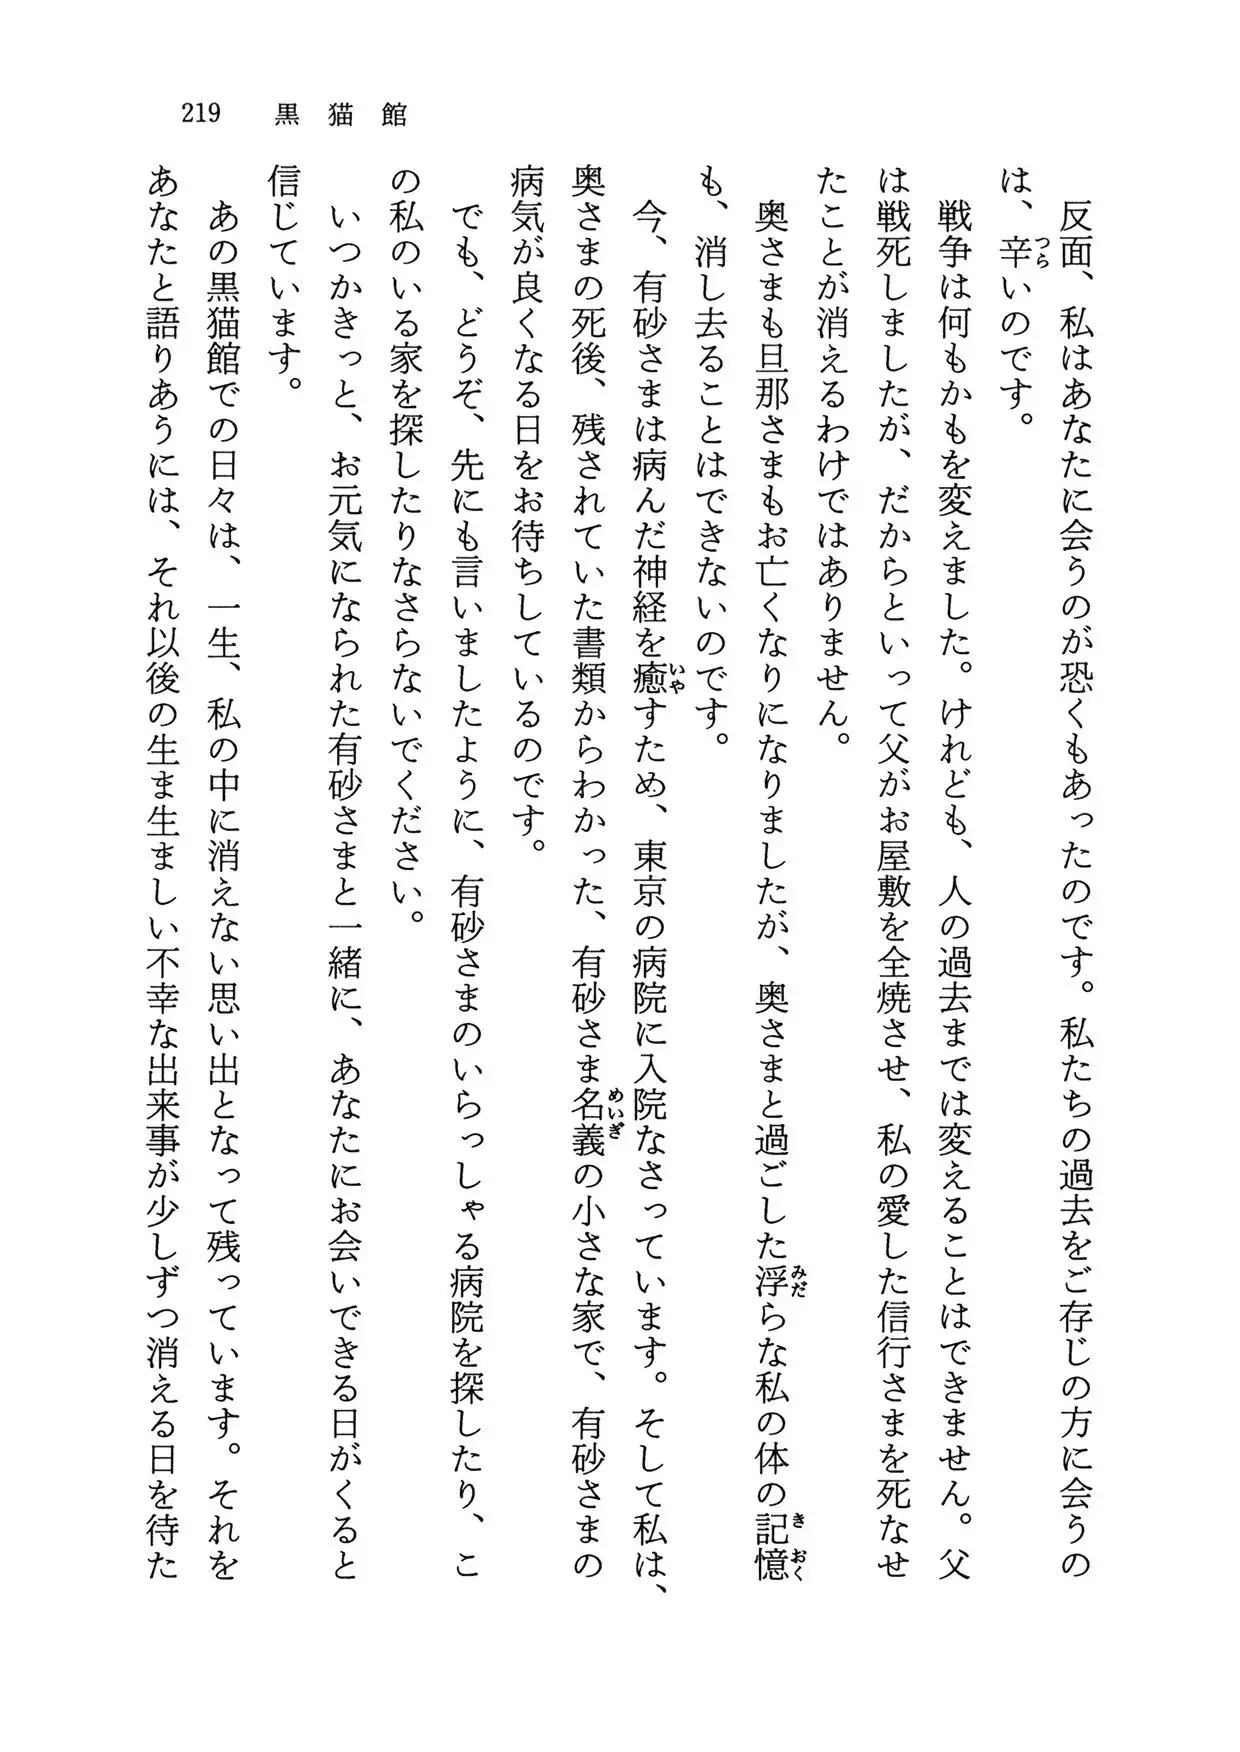 219 黒猫館
反面、私はあなたに会うのが恐くもあったのです。私たちの過去をご存じの方に会うの
は、辛いのです。
戦争は何もかもを変えました。けれども、人の過去までは変えることはできません。父
は戦死しましたが、だからといって父がお屋敷を全焼させ、私の愛した信行さまを死なせ
たことが消えるわけではありません。
奥さまも旦那さまもお亡くなりになりましたが、奥さまと過ごした浮らな私の体の記憶
も、消し去ることはできないのです。
今、有砂さまは病んだ神経を癒すため、東京の病院に入院なさっています。そして私は、
奥さまの死後、残されていた書類からわかった、有砂さま名義の小さな家で、有砂さまの
病気が良くなる日をお待ちしているのです。
でも、どうぞ、先にも言いましたように、有砂さまのいらっしゃる病院を探したり、こ
の私のいる家を探したりなさらないでください。
いつかきっと、お元気になられた有砂さまと一緒に、あなたにお会いできる日がくると
信じています。
あの黒猫館での日々は、一生、私の中に消えない思い出となって残っています。それを
あなたと語りあうには、それ以後の生ま生ましい不幸な出来事が少しずつ消える日を待た